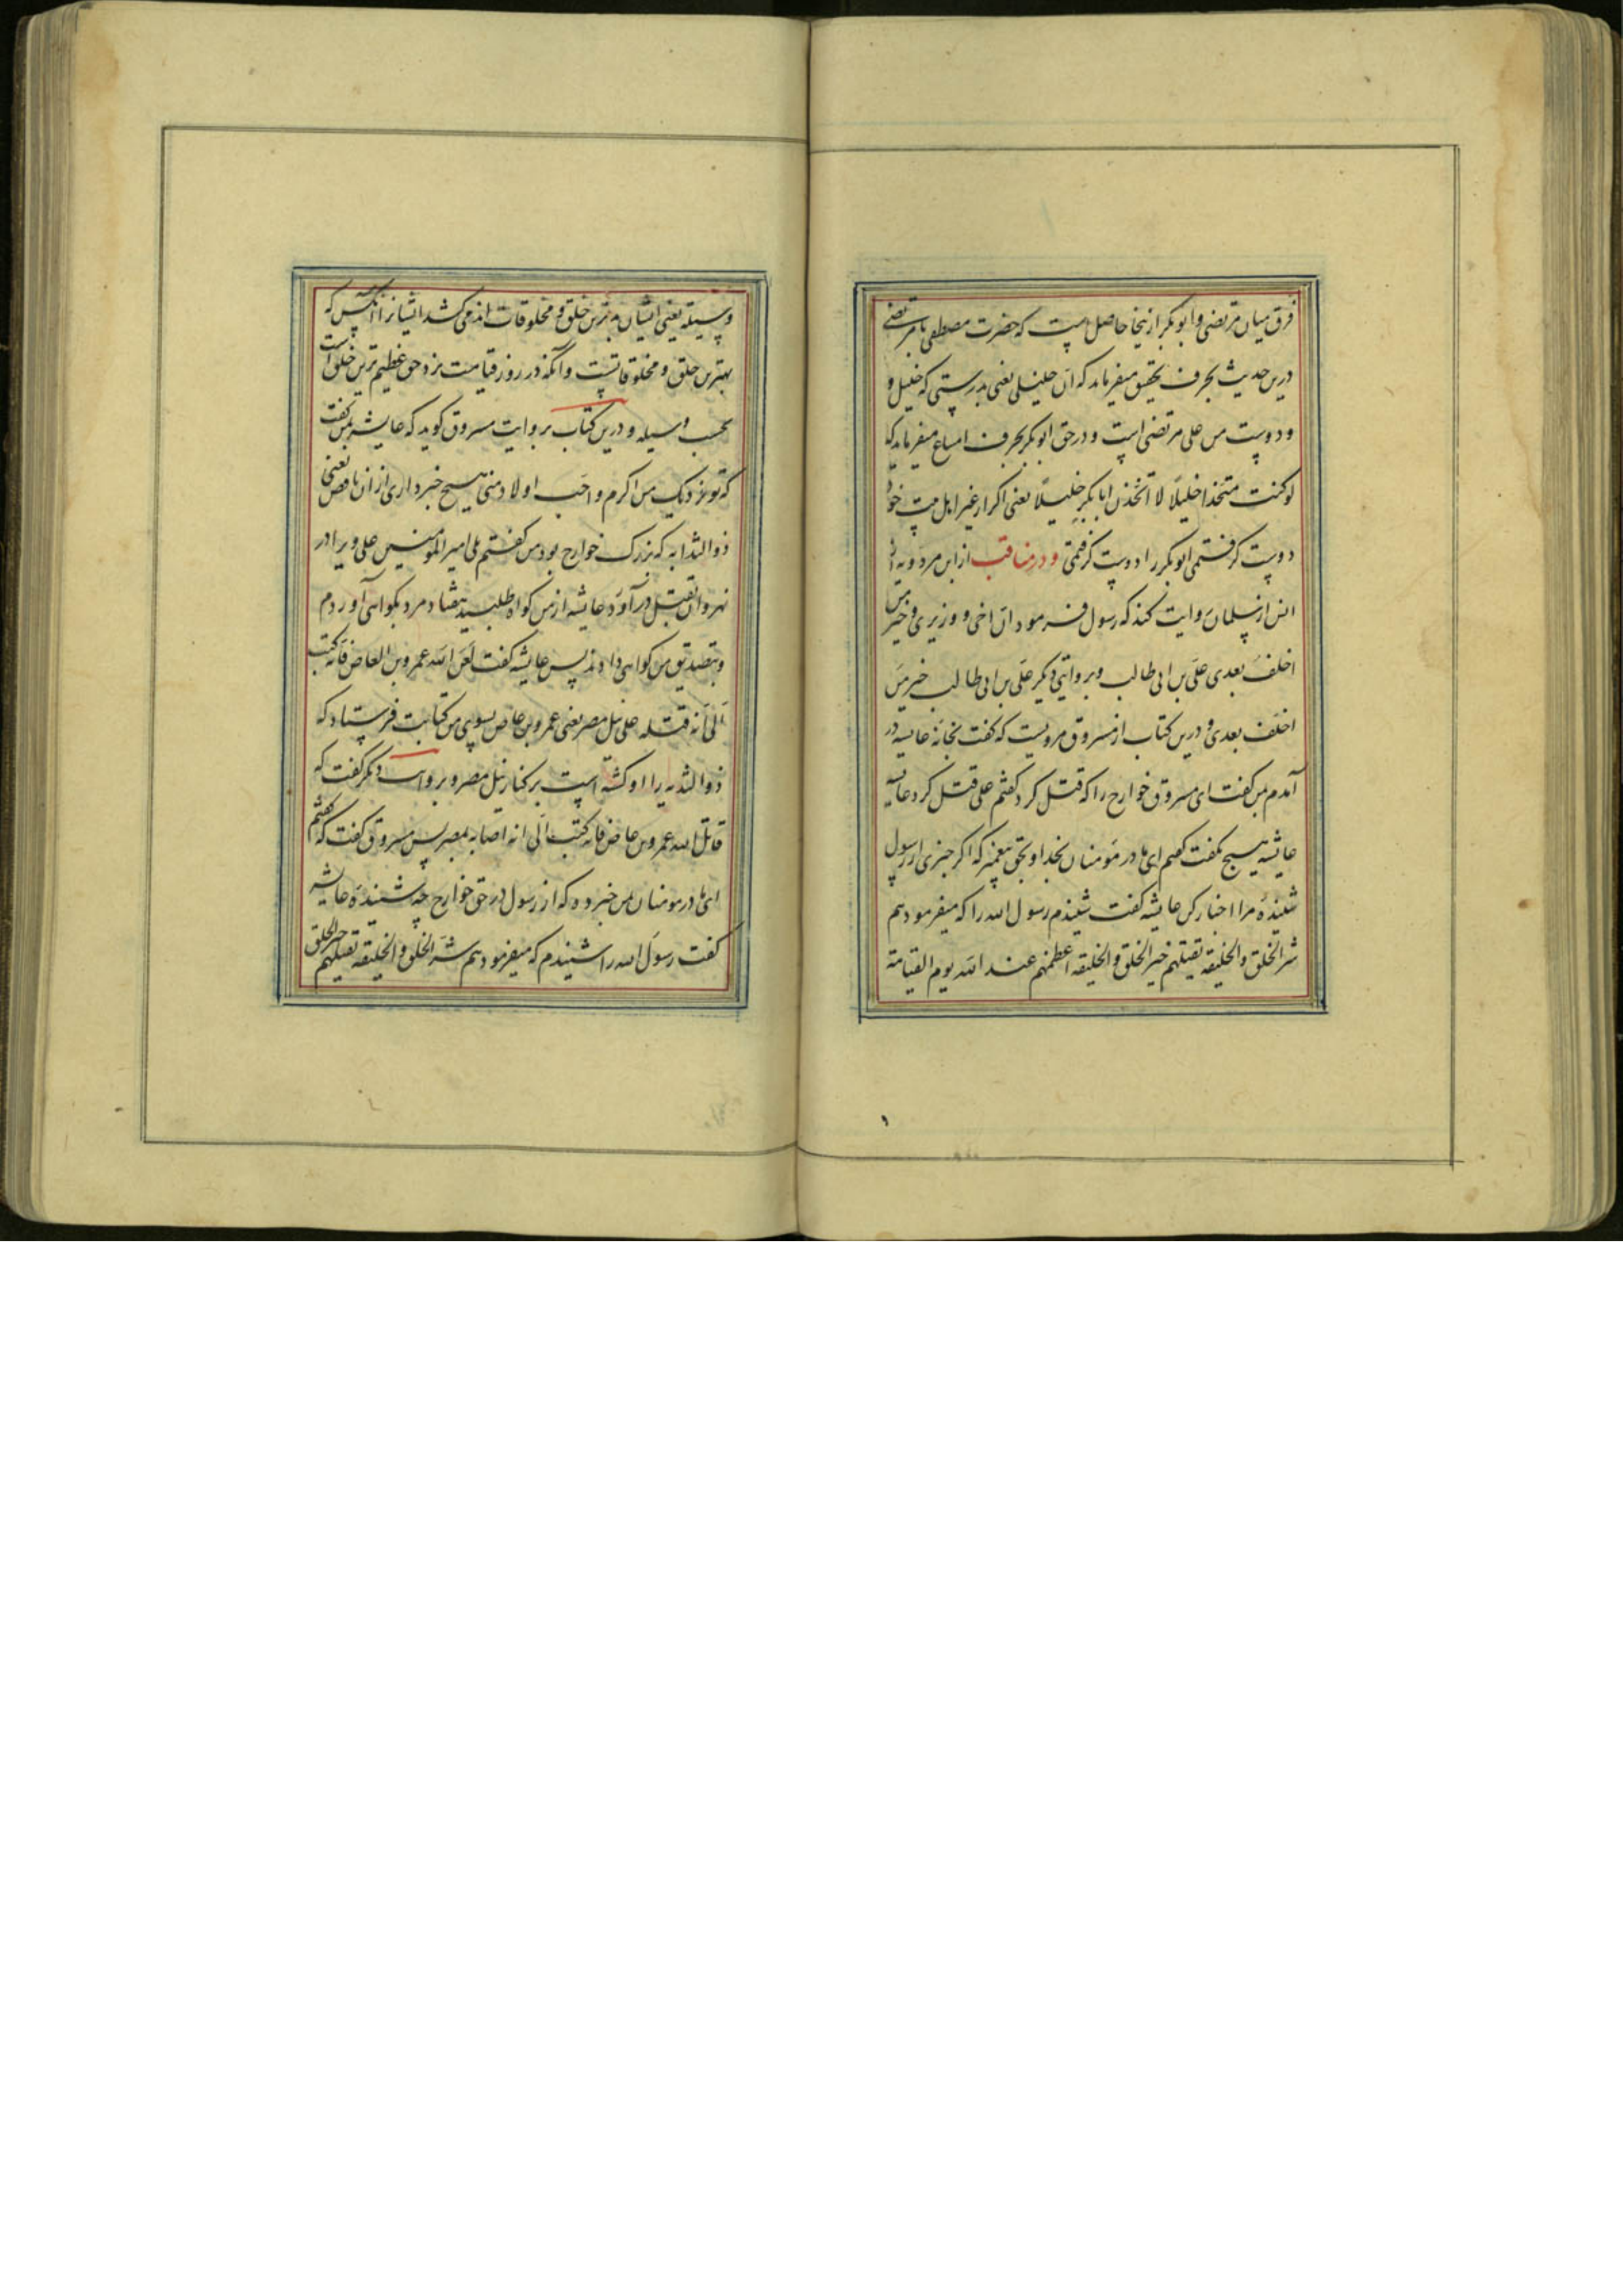 فرق میان مرتضی و ابو بکر ازینجا حاصل است که حضرت مصطفی با مرتضی
درین حدیث بحرف تحقیق میفرماید که ان خلیلی یعنی بدرستی که خلیل و
و دوست من علی مرتضی است و در حق ابو بکر بحرف امتناع میفرماید که
لو کنت متخذا خلیلًا لا اتخذن ابا بکر خلیلًا یعنی اکر از غیر اهل بیت خود
دوست کرفتمی ابو بکر را دوست کرفتمی و در مناقب از ابن مردویه از
انس از سلمان روایت کند که رسول فرمود ان اخی و وزیری و خیر من
اخلف بعدی علی بن ابی طالب و بروایتی دیکر علی بن ابی طالب خیر من
اخلف بعدی و درین کتاب از مسروق مرویست که کفت بخانه عایشه در
آمدم بمن کفت ای مسروق خوارج را که قتل کرد کفتم علی قتل کرد عایشه
عایشه هیچ نکفت کفتم ای مادر مؤمنان بخدا و بحق پیغمبر که اکر چیزی از رسول
شنیدهٔ مرا اخبار کن عایشه کفت شنیدم رسول الله را که میفرمود هم
شر الخلق و الخلیقه یقتلهم خیر الخلق و الخلیقه اعظمهم عند الله یوم القیامة
وسیله یعنی ایشان بدترین خلق و مخلوقات اند می کشد ایشانرا آنکس که
بهترین خلق و مخلوقاتست و آنکه در روز قیامت نزد حق عظیم ترین خلق است
بحسب وسیله و درین کتاب بروایت مسروق کوید که عایشه بمن کفت
که تو نزدیک من اکرم و احب اولاد منی هیچ خبر داری از ان ناقص یعنی
ذو الثدایه که بزرک خوارج بود من کفتم بلی امیر المؤمنین علی ویرا در
نهروان بقتل در آورد عایشه از من کواه طلبید هفتاد مرد بکواهی آوردم
و بتصدیق من کواهی دادند پس عایشه کفت لعن الله عمرو بن العاص فانه کتب
الی انه قتله علی نیل مصر یعنی عمرو بن عاص بسوی من کتابت فرستاد که
ذو الثدیه را او کشته است بر کنار نیل مصر و بروایت دیکر کفت که
قاتل الله عمرو بن عاص فانه کتب الی انه اصابه بمصر پس مسروق کفت که کفتم
ای مادر مومنان بمن خبر ده که از رسول در حق خوارج چه شنیدهٔ عایشه
کفت رسول الله را شنیدم که میفرمود هم شر الخلق و الخلیقه یقتلهم خیر الخلق